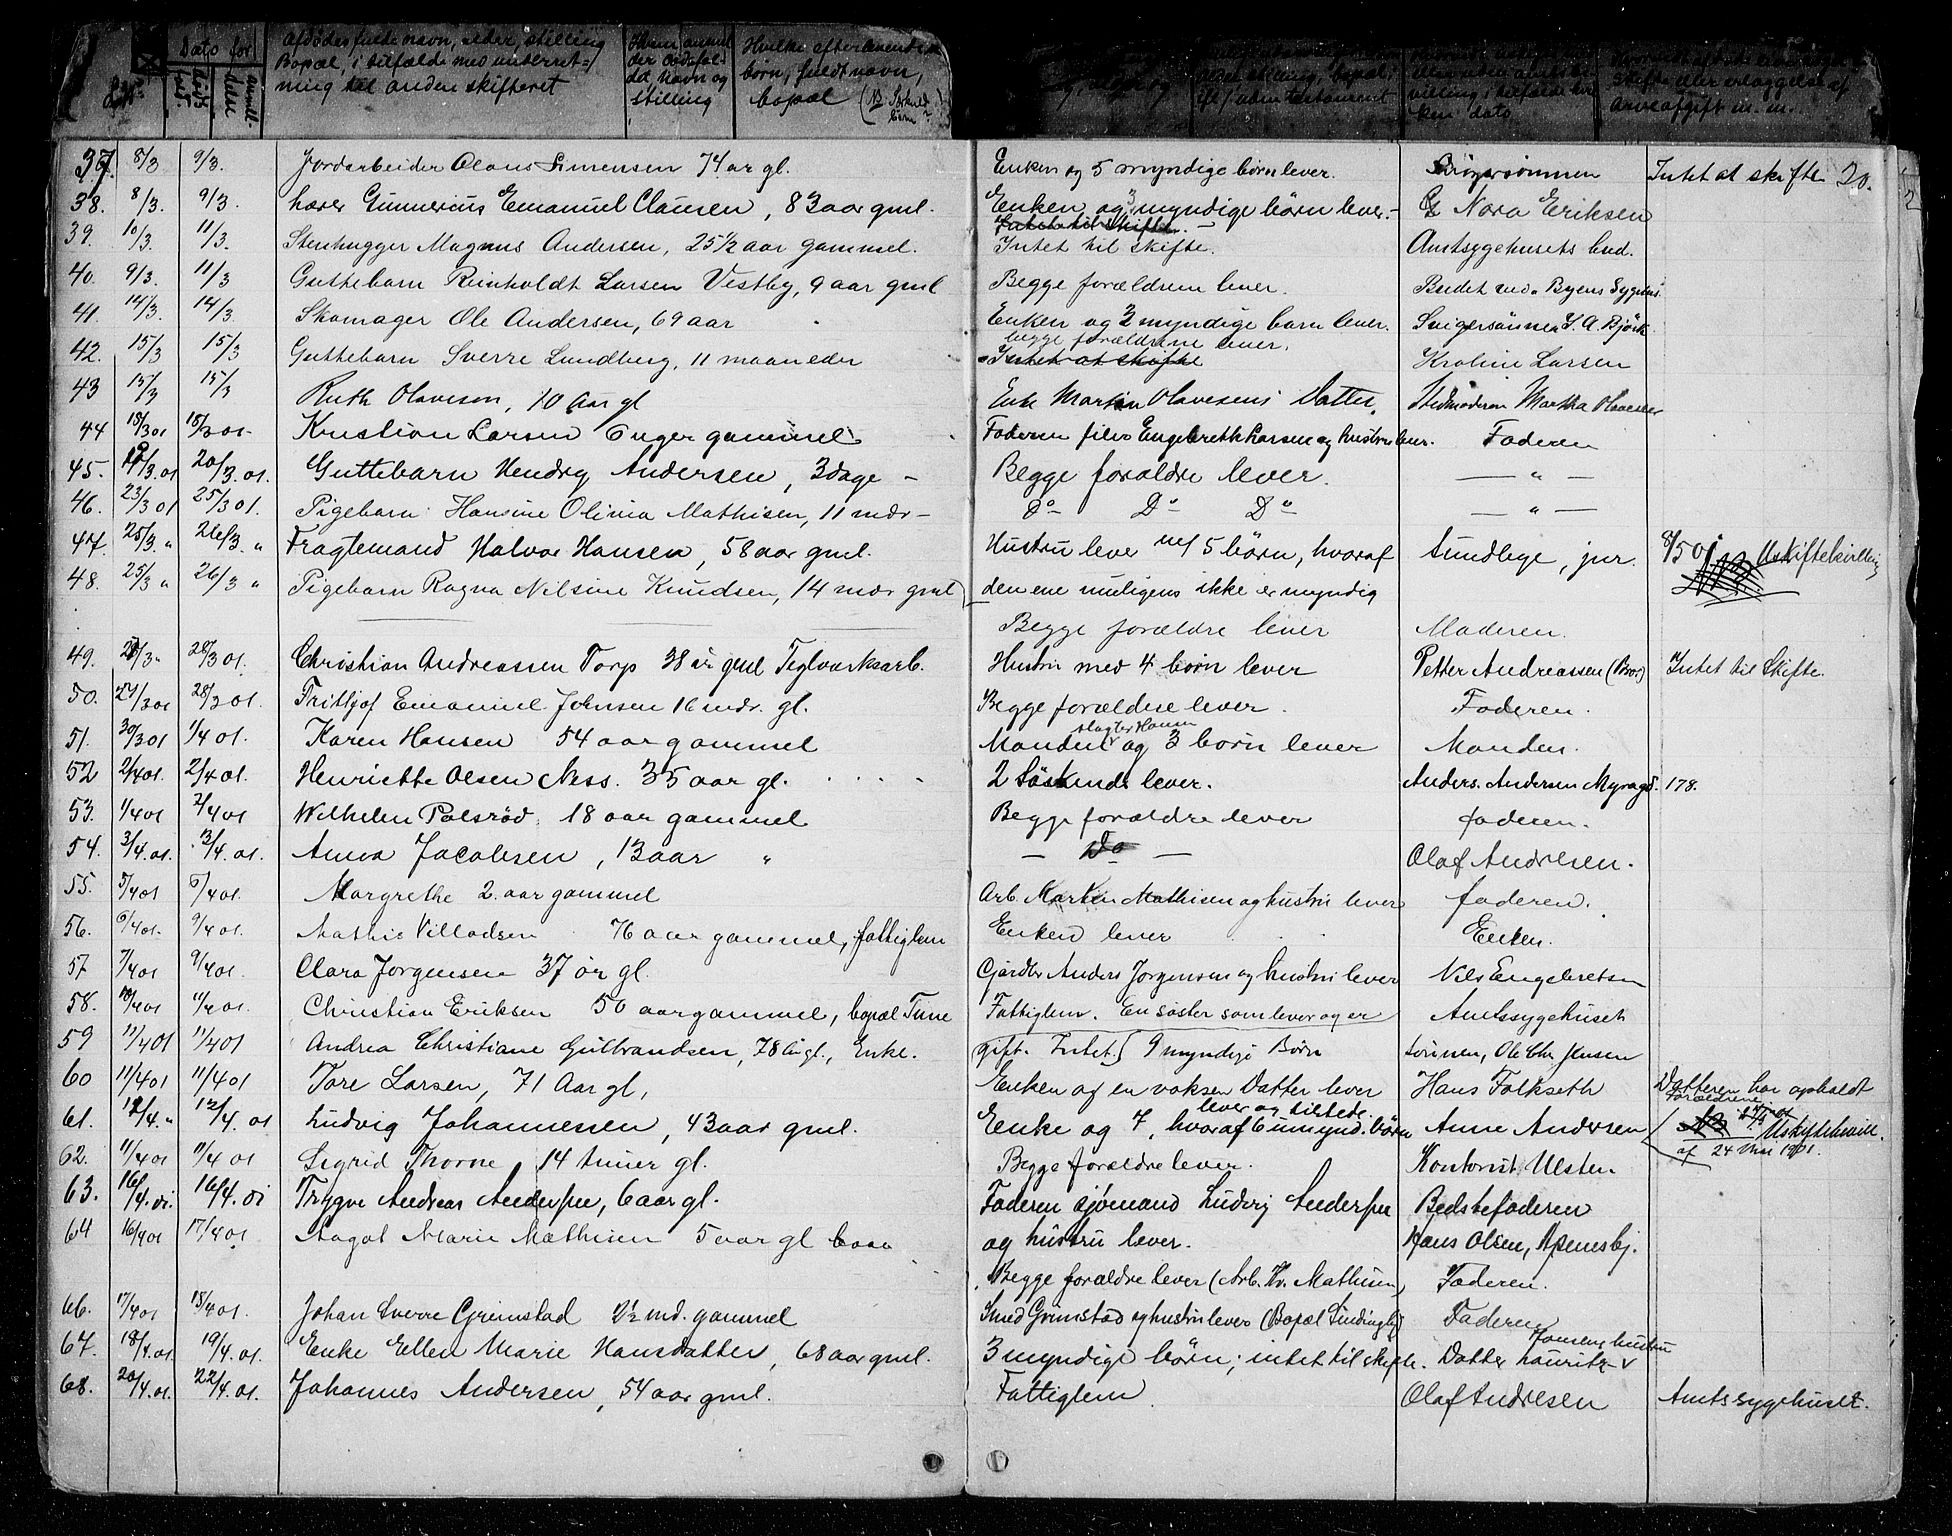 Dato for
Afdødes fulde navn, alder, stilling
Bopæl, i tilfælde med underret=
ning til anden skifteret
Hvem anmel
der dødsfal-
det Navn og
stilling
Hvilke efterlevende
børn, fuldt navn,
bopæl (NB Særkuld
børn?
død
anmeldelse
stilling, bopæl,
uden testament
ken dato
Skifte eller erlæggelse af
arveafgift m. m.
20.
37. 8/3 9/3. Jordarbeider Olaus Simensen 74 ar gl. Enken og 5 myndige børn lever. Intet at skifte
38. 8/3. 9/3. Gunnerius Emanuel Clausen, 83 aar gml. Enken og 3 myndige børn lever.- Nora Eriksen
Intet til skifte. -
39. 10/3. 11/3. Stenhugger Magnus Andersen, 25 1/2 aar gammel. Intet til skifte. Amtsygehusets bud.
40. 9/3. 11/3 Guttebarn Reinholdt Larsen Vestby, 9 aar gml Begge forældrene lever. Budet ved Byens Sygehus.
41. 14/3. 14/3. Skomager Ole Andersen, 69 aar Enken og 2 myndige barn lever. Svigersønnen J. A. Björk
begge forældrene lever.
42. 15/3 15/3 Guttebarn Sverre Lundberg, 11 maaneder Intet at skifte Kroline Larsen
43 15/3 15/3 Ruth Olaveson, 10 Aar gl Enk Martin Olavesens Datter, Stedmoderen Martha Olavesen
44 18/3 01 18/3 01- Kristian Larsen 6 uger gammel Faderen filer Engebreth Larsen og hustru lever. Faderen
45. 19/3.01 20/3.01. Guttebarn Hendry Andersen, 3 dage - Begge forældre lever. — " —
46. 23/3 01 25/3 01. Pigebarn Hansine Olivia Mathisen, 11 mdr - Do Do Do — " —
47. 25/3. " 26/3 " Fragtemand Halvor Hansen, 58 aar gml. Hustru lever m/ 5 børn, hvoraf Sundlege, jur. 8/5 01 Uskiftebevilling
48. 25/3 " 26/3 " Pigebarn Ragna Nilsine Knudsen, 14 mdr gml den ene muligens ikke er myndig
Begge forældre lever Moderen.
49. 28/3 01. Christian Andreassen Torp 38 år gml Teglværksarb. Hustru med 4 børn lever Petter Andreassen (Bror) Intet til Skifte.
50. 27/3 01 28/3 01. Frithjof Emanuel Johnsen 16 mdr. gl. Begge forældre lever. Faderen.
51. 30/3 01 1/4 01. Karen Hansen 54 aar gammel Manden slagter Hansen og 3 børn lever Manden.
52 2/4 01. 2/4 01. Henriette Olsen Ness. 35 aar gl. 2 Søskende lever. Anders. Andersen Myragd. 178.
53. 1/4 01 2/4 01 Wilhelm Palsrød 18 aar gammel Begge forældre lever faderen.
54. 3/4.01. 3/4.01. Anna Jacobsen, 13 aar " — Do — Olaf Andresen.
55. 5/4 01 6/4 01. Margrethe 2 aar gammel Arb. Martin Mathisen og hustru lever faderen.
56. 6/4 01. 9/4 01. Mathis Villadsen 76 aar gammel, fattiglem Enken lever Enken.
57 7/4 01 9/4 01. Clara Jorgensen 37 år gl. Gjørtler Anders Jorgensen og hustru lever Nils Engebretsen
58. 10/4 01 11/4 01. Christian Eriksen 50 aar gammel, bopæl Tune Fattiglem. En søster som lever og er Amtssygehuset
59 11/4 01 11/4 01 Andrea Christiane Gulbrandsen, 78 år gl., Enke. gift. Intet. 9 myndige Børn Sønnen, Ole Chr. Jensen
60 11/4 01 11/4 01 Tore Larsen, 71 Aar gl, Enken og en voksen Datter lever Hans Folkseth Datteren har opholdt
forældrene
61. 12/4. " 12/4. 01 Ludvig Johannessen, 43 aar gml. Enke og 7, hvoraf 6 umynd. børn lever og tilstede. Anne Andersen Uskiftebevill.
af 24 Mai 1901.
62. 11/4 01 11/4 01 Sigrid Thorne 14 timer gl. Begge forældre lever. Kontorist Ulsten
63. 16/4.01. 16/4.01 Trygve Andreas Andersen, 6 aar gl. Faderen sjømand Ludvig Andersen Bedstefaderen
og hustru lever. Hans Olsen, Apenesbj.
64 16/4 01 17/4 01. Aagot Marie Mathisen 5 aar gl
Begge forældre lever (Arb. Kr. Mathisen) Faderen.
66. 17/4 01 18/4 01. Johan Sverre Grimstad 2 1/2 md. gammel Smed Grimstad og hustru lever (Bopæl Lindingbj) Faderen
67. 18/4.01. 19/4.01. Enke Ellen Marie Hansdatter, 68 aar gml. 3 myndige børn; intet til skifte. Datter Lauritz Hansens hustru
68. 20/4.01. 22/4.01. Johannes Andersen, 54 aar gml. Fattiglem Olaf Andresen Amtssygehuset.